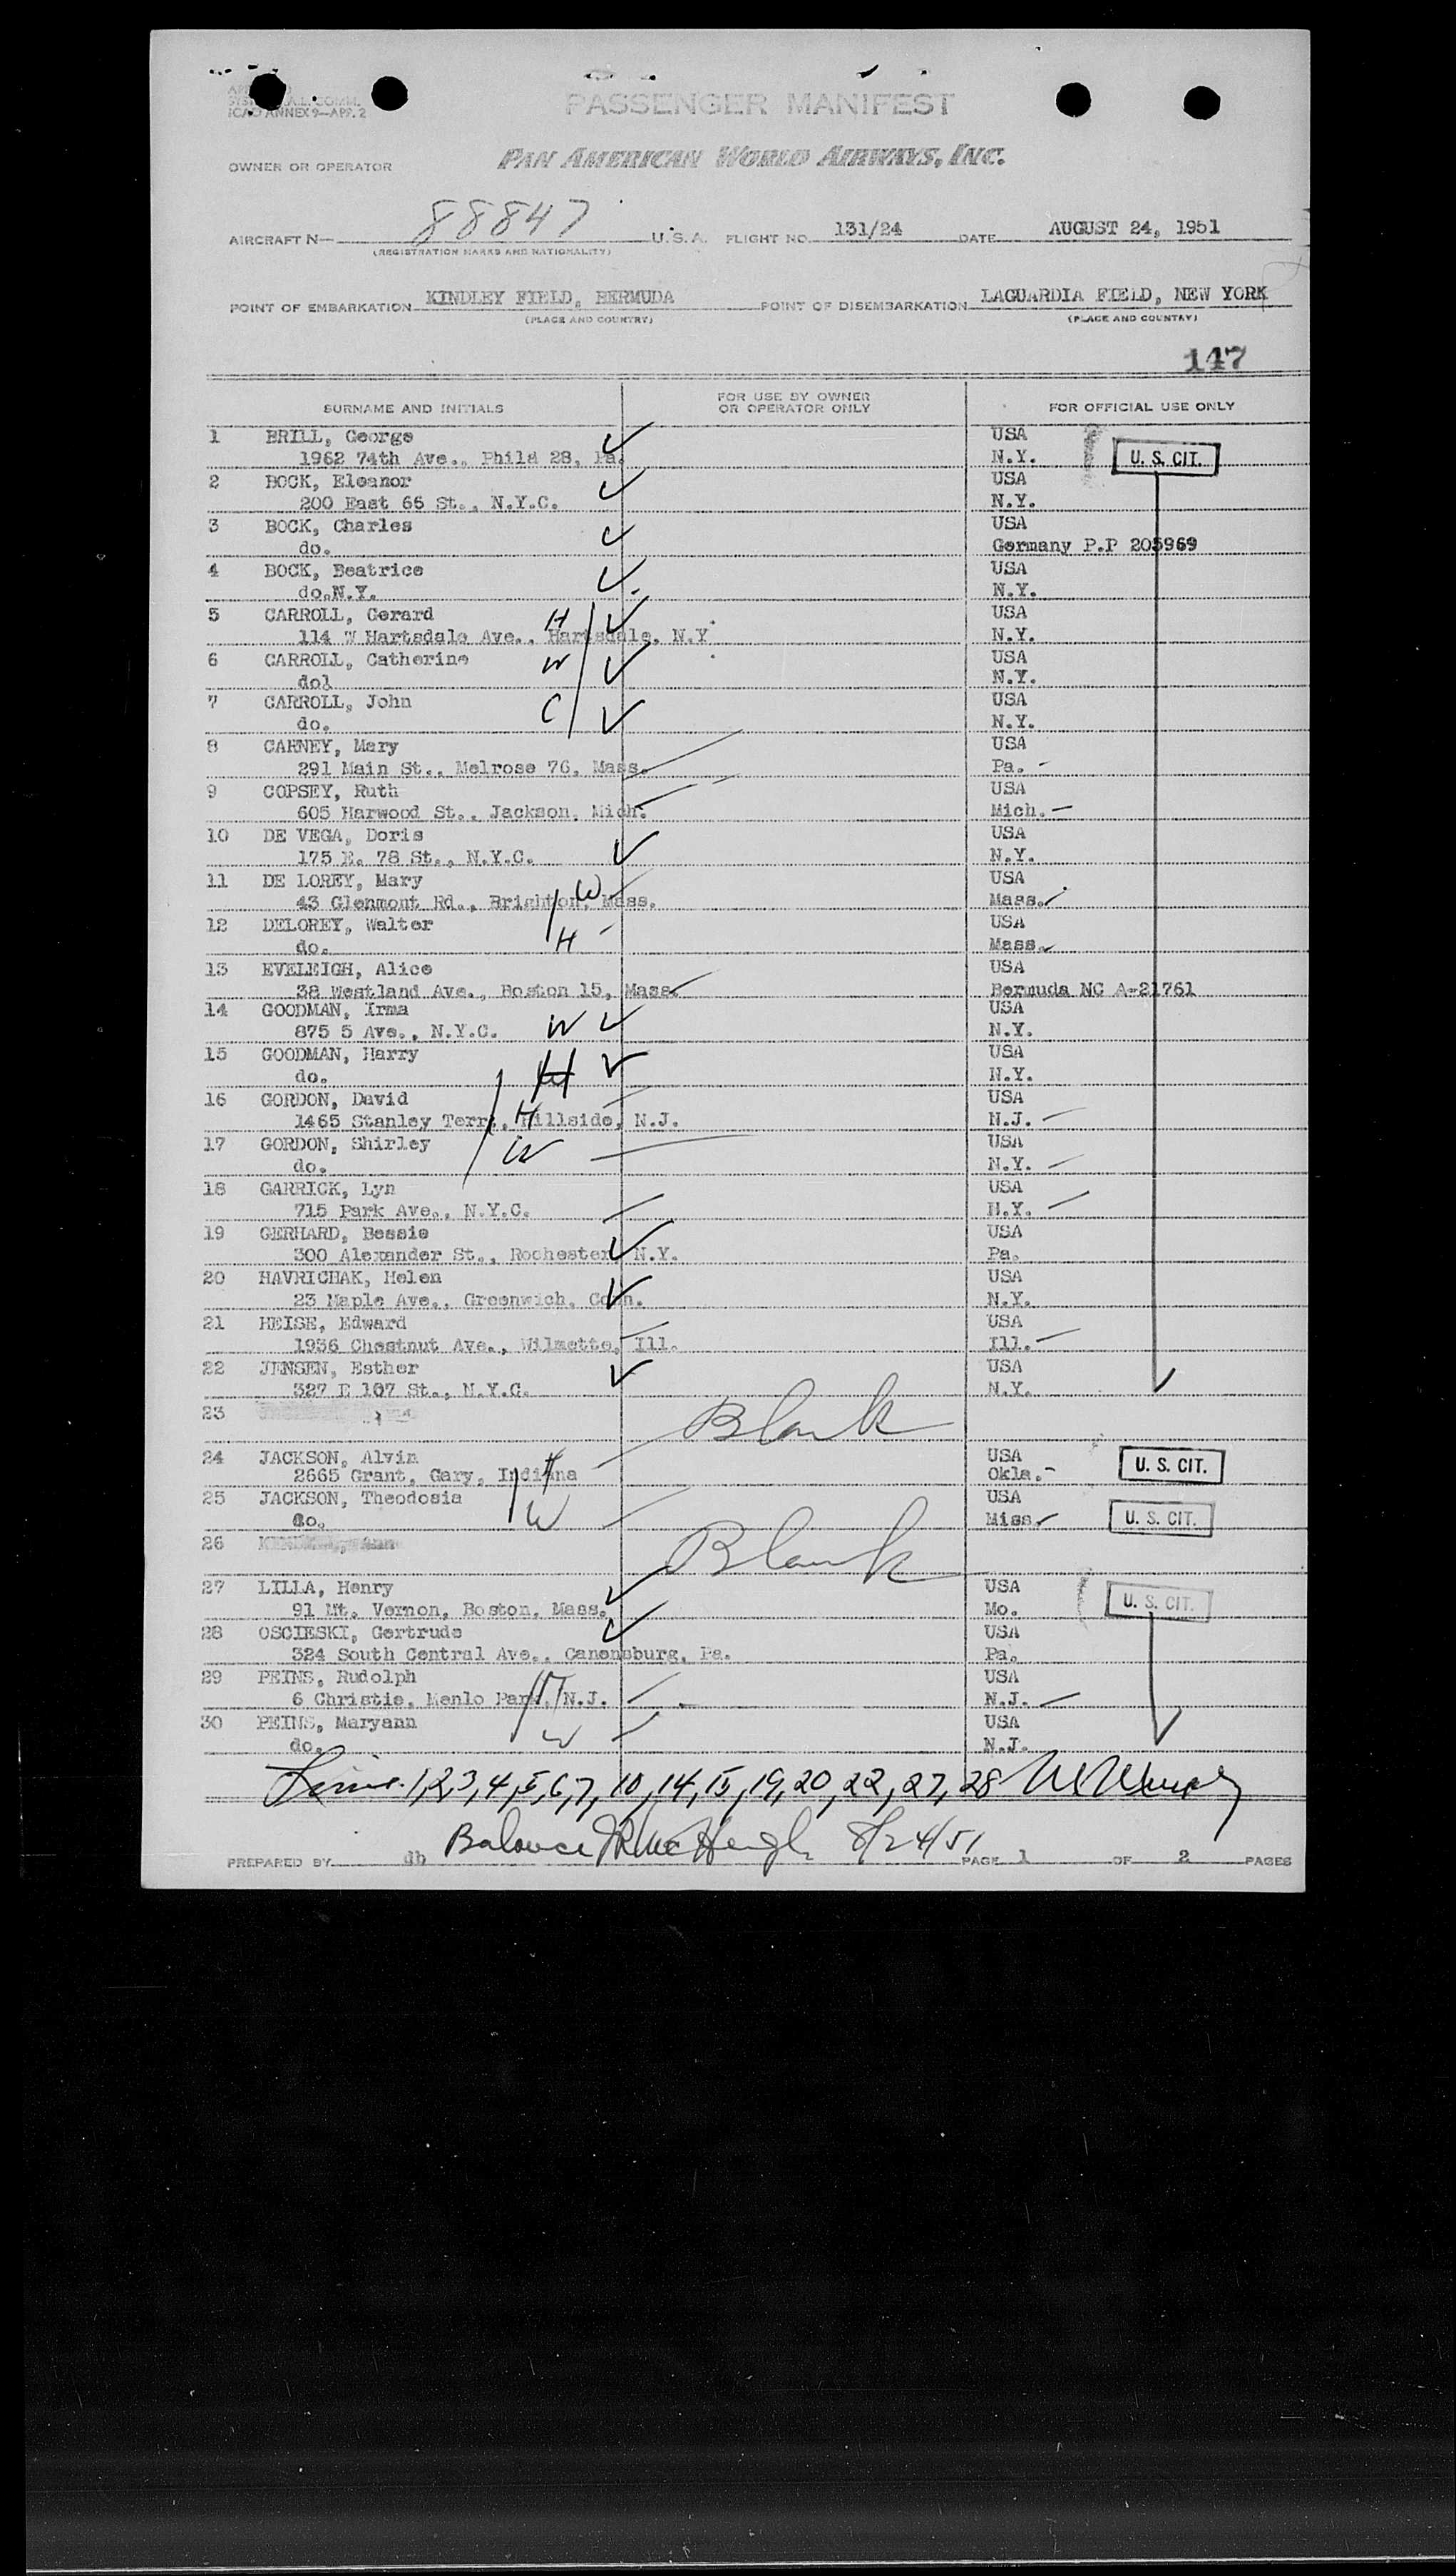 ICAO ANNEX 9—APP. 2
PASSENGER MANIFEST
OWNER OR OPERATOR PAN AMERICAN WORLD AIRWAYS, INC.
AIRCRAFT N— 88847 U.S.A. FLIGHT NO. 131/24 DATE AUGUST 24, 1951
(REGISTRATION MARKS AND NATIONALITY)
POINT OF EMBARKATION KINDLEY FIELD, BERMUDA POINT OF DISEMBARKATION LAGUARDIA FIELD, NEW YORK
(PLACE AND COUNTRY) (PLACE AND COUNTRY)
147
SURNAME AND INITIALS FOR USE BY OWNER OR OPERATOR ONLY FOR OFFICIAL USE ONLY
1 BRILL, George USA
1962 74th Ave., Phila 28, Pa. N.Y. U. S. CIT.
2 BOCK, Eleanor USA
200 East 66 St., N.Y.C. N.Y.
3 BOCK, Charles USA
do. Germany P.P 205969
4 BOCK, Beatrice USA
do.N.Y. N.Y.
5 CARROLL, Gerard H USA
114 W Hartsdale Ave., Hartsdale, N.Y. N.Y.
6 CARROLL, Catherine W USA
dol N.Y.
7 CARROLL, John C USA
do. N.Y.
8 CARNEY, Mary USA
291 Main St., Melrose 76, Mass. Pa.
9 COPSEY, Ruth USA
605 Harwood St., Jackson, Mich. Mich.
10 DE VEGA, Doris USA
175 E. 78 St., N.Y.C. N.Y.
11 DE LOREY, Mary W USA
43 Glenmont Rd., Brighton, Mass. Mass.
12 DELOREY, Walter USA
do. H Mass.
13 EVELEIGH, Alice USA
38 Westland Ave., Boston 15, Mass. Bermuda NC A-21761
14 GOODMAN, Irma USA
875 5 Ave., N.Y.C. W N.Y.
15 GOODMAN, Harry USA
do. H N.Y.
16 GORDON, David USA
1465 Stanley Terr., Hillside, N.J. H N.J.
17 GORDON, Shirley USA
do. W N.Y.
18 GARRICK, Lyn USA
715 Park Ave., N.Y.C. N.Y.
19 GERHARD, Bessie USA
300 Alexander St., Rochester N.Y. Pa.
20 HAVRICHAK, Helen USA
23 Maple Ave., Greenwich, Conn. N.Y.
21 HEISE, Edward USA
1936 Chestnut Ave., Wilmette, Ill. Ill.
22 JENSEN, Esther USA
327 E 107 St., N.Y.C. N.Y.
23 Blank
24 JACKSON, Alvin H USA
2665 Grant, Gary, Indiana Okla. U. S. CIT.
25 JACKSON, Theodosia USA
do. W Miss. U. S. CIT.
26 Blank
27 LILLA, Henry USA
91 Mt. Vernon, Boston, Mass. Mo. U. S. CIT.
28 OSCIESKI, Gertrude USA
324 South Central Ave., Canonsburg, Pa. Pa.
29 PEINS, Rudolph H USA
6 Christie, Menlo Park, N.J. N.J.
30 PEINS, Maryann USA
do. W N.J.
1,2,3,4,5,6,7,10,14,15,19,20,22,27,28
Balance 8/24/51
PREPARED BY db PAGE 1 OF 2 PAGES